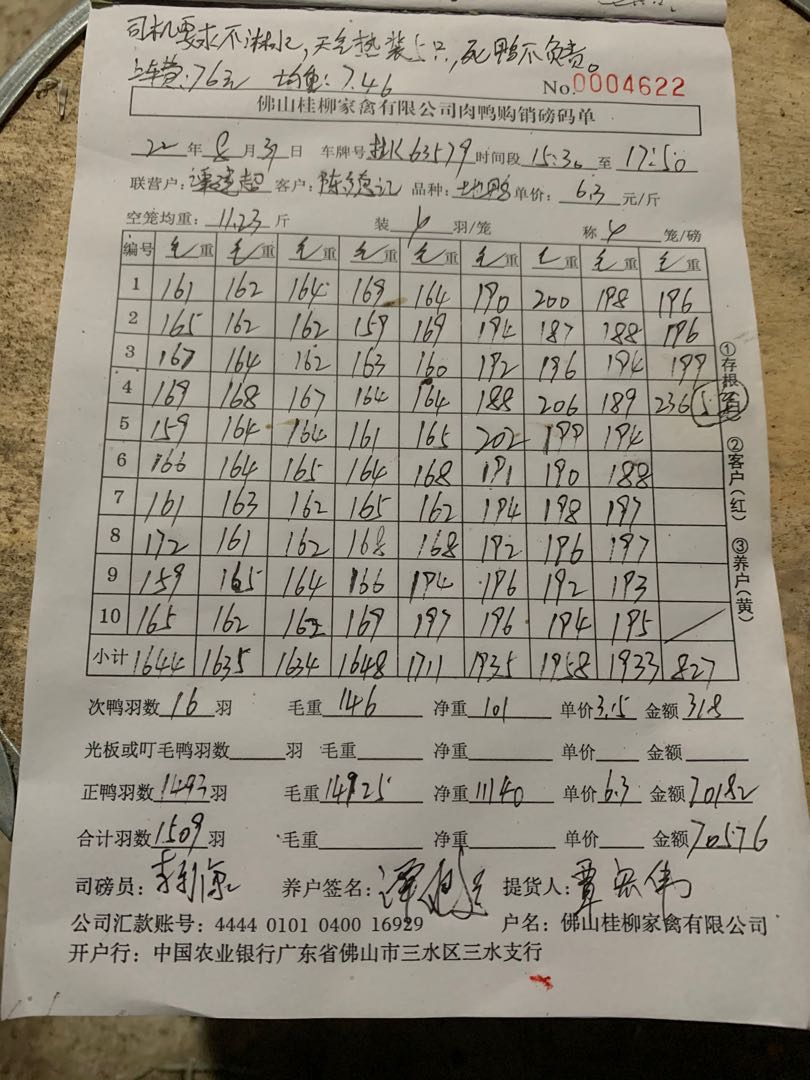 司机要求不淋水,天气热装占只,死鸭不负责。
上车费:76元 均重:7.46
No.0004622
佛山桂柳家禽有限公司肉鸭购销磅码单
22年8月31日 车牌号桂K63579时间段15:30至17:50
联营户: 客户:陈德记 品种:土鸭单价:6.3元/斤
空笼均重:11.23斤 装4羽/笼 称4笼/磅
编号 毛重 毛重 毛重 毛重 毛重 毛重 毛重 毛重 毛重
1 161 162 164 169 164 190 200 198 196
2 165 162 162 159 169 194 187 188 196
3 167 164 162 163 160 192 196 194 199
4 169 168 167 164 164 188 206 189 236
5 159 164 164 161 165 202 199 194
6 166 164 165 164 168 191 190 188
7 161 163 162 165 162 194 198 197
8 172 161 162 168 168 192 196 197
9 159 165 164 166 194 196 192 193
10 165 162 162 169 197 196 194 195
小计 1644 1635 1634 1648 1711 1935 1958 1933 827
次鸭羽数16羽 毛重146 净重101 单价3.15 金额318
光板或叮毛鸭羽数 羽 毛重 净重 单价 金额
正鸭羽数1493羽 毛重14925 净重11140 单价6.3 金额70182
合计羽数1509羽 毛重 净重 单价 金额70576
司磅员: 养户签名: 提货人:覃宏伟
公司汇款账号:4444 0101 0400 16929 户名:佛山桂柳家禽有限公司
开户行:中国农业银行广东省佛山市三水区三水支行
①存根(白) ②客户(红) ③养户(黄)